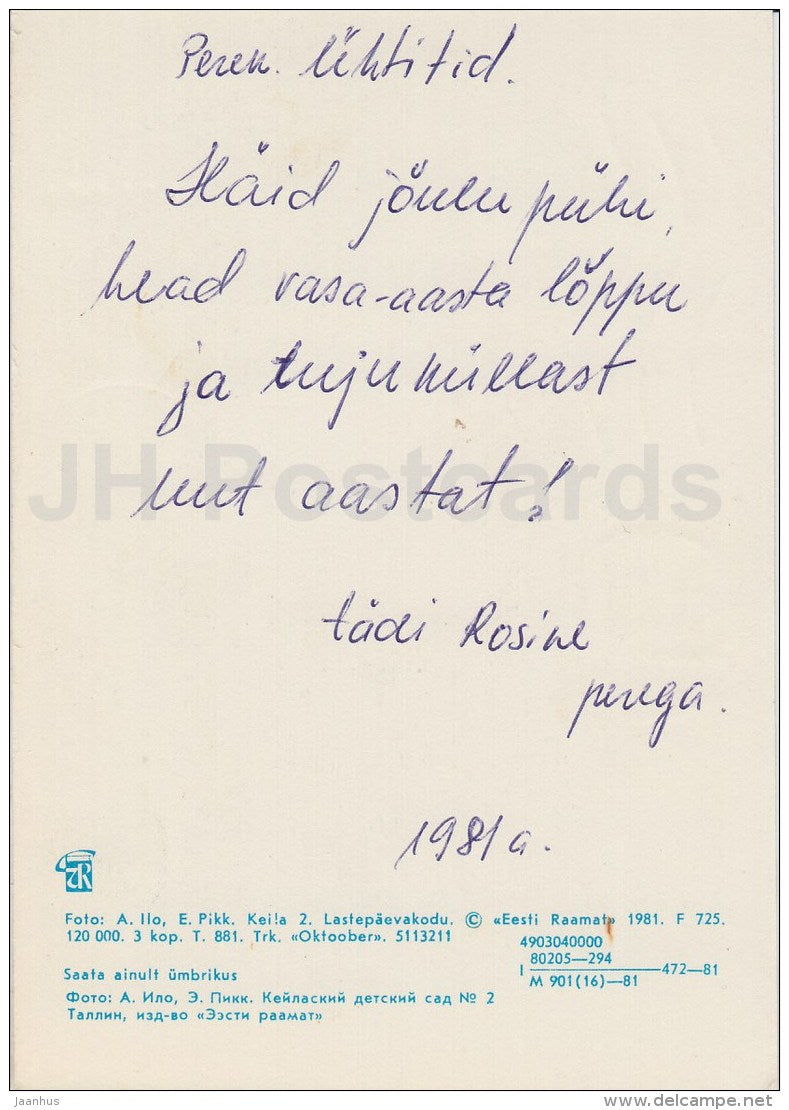 Perek. Lehtitid.
Häid jõulu pühi,
head vasa-aasta lõppu
ja tujuküllast
uut aastat!
tädi Rosine
perega.
1981 a.
JH Postcards
Foto: A. Ilo, E. Pikk. Keila 2. Lastepäevakodu. © «Eesti Raamat» 1981. F 725.
120 000. 3 kop. T. 881. Trk. «Oktoober». 5113211
4903040000
80205—294
I ———— 472—81
M 901(16)—81
Saata ainult ümbrikus
Фото: А. Ило, Э. Пикк. Кейлаский детский сад № 2
Таллин, изд-во «Ээсти раамат»
Jaanhus
delcampe.net